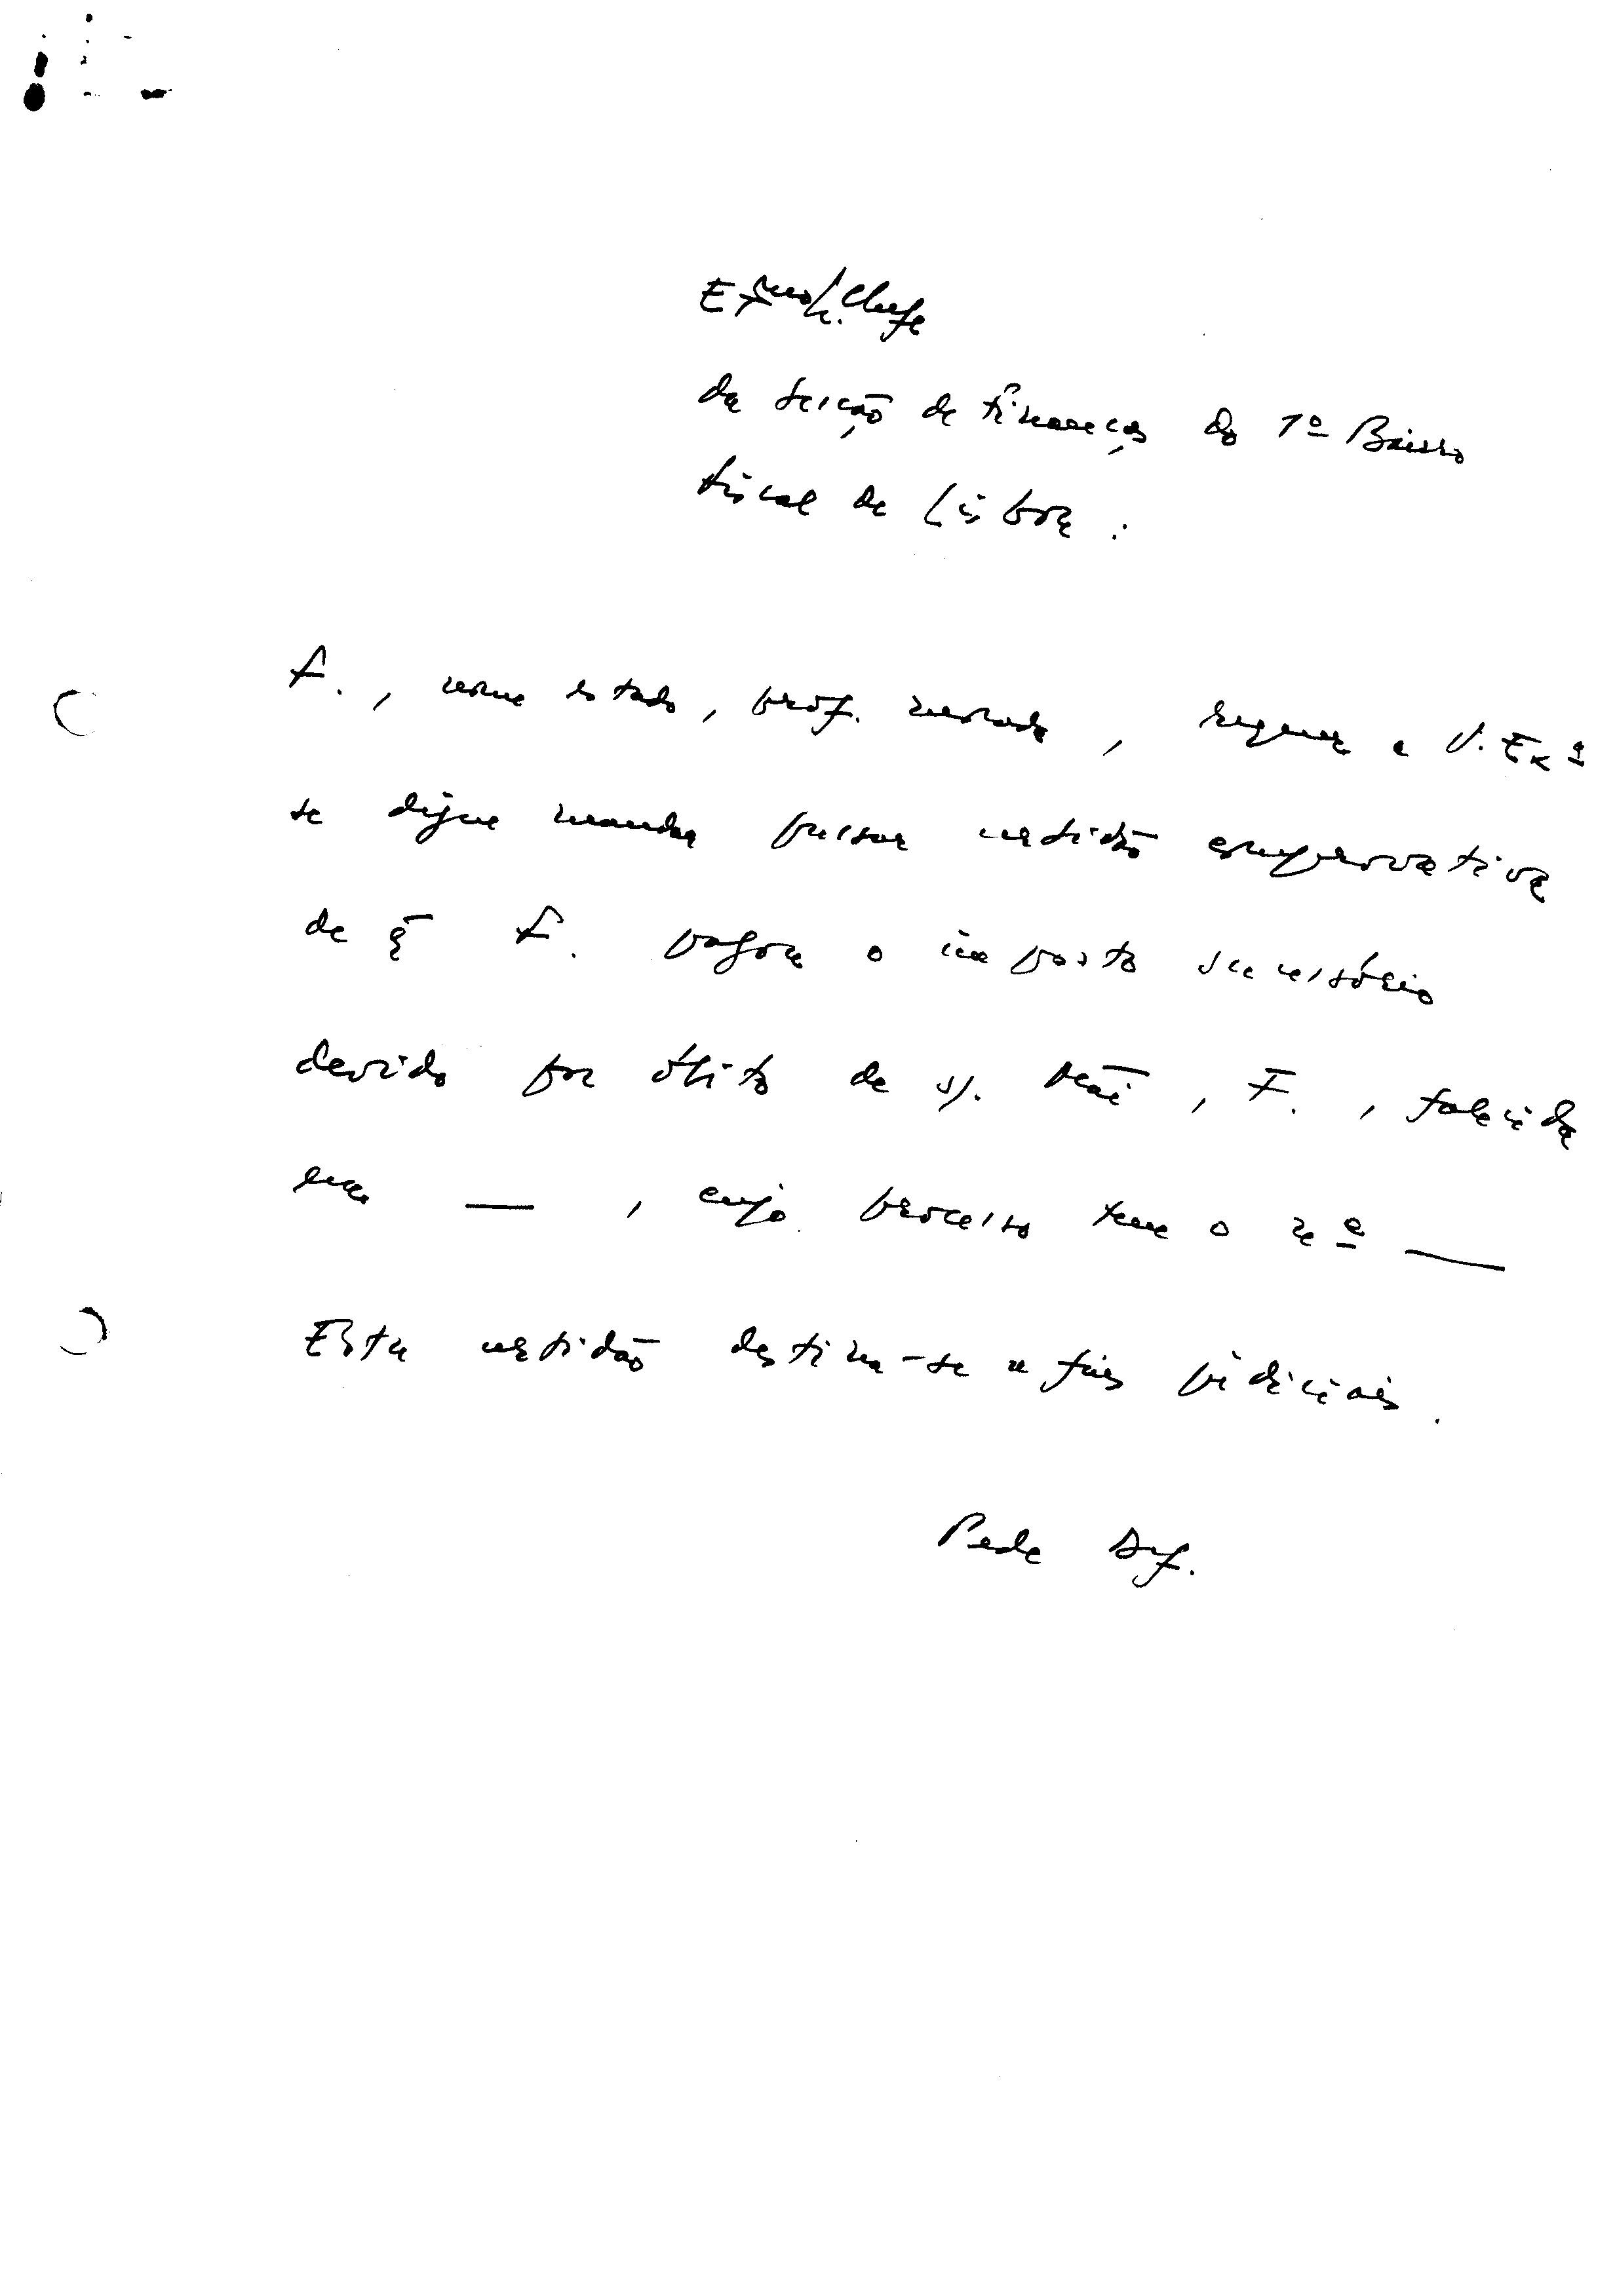 Exmo Sr. Chefe
da Secção de Finanças do 1º Bairro
Fiscal de Lisboa:
F., nome estado, prof. morada, requer a V. Exª
se digne mandar passar certidão comprovativa
de q̄ F. pagou o imposto sucessório
devido por óbito de s/. Mãe, F., falecida
em —, cujo processo tem o nº —
Esta certidão destina-se a fins judiciais.
Pede Def.